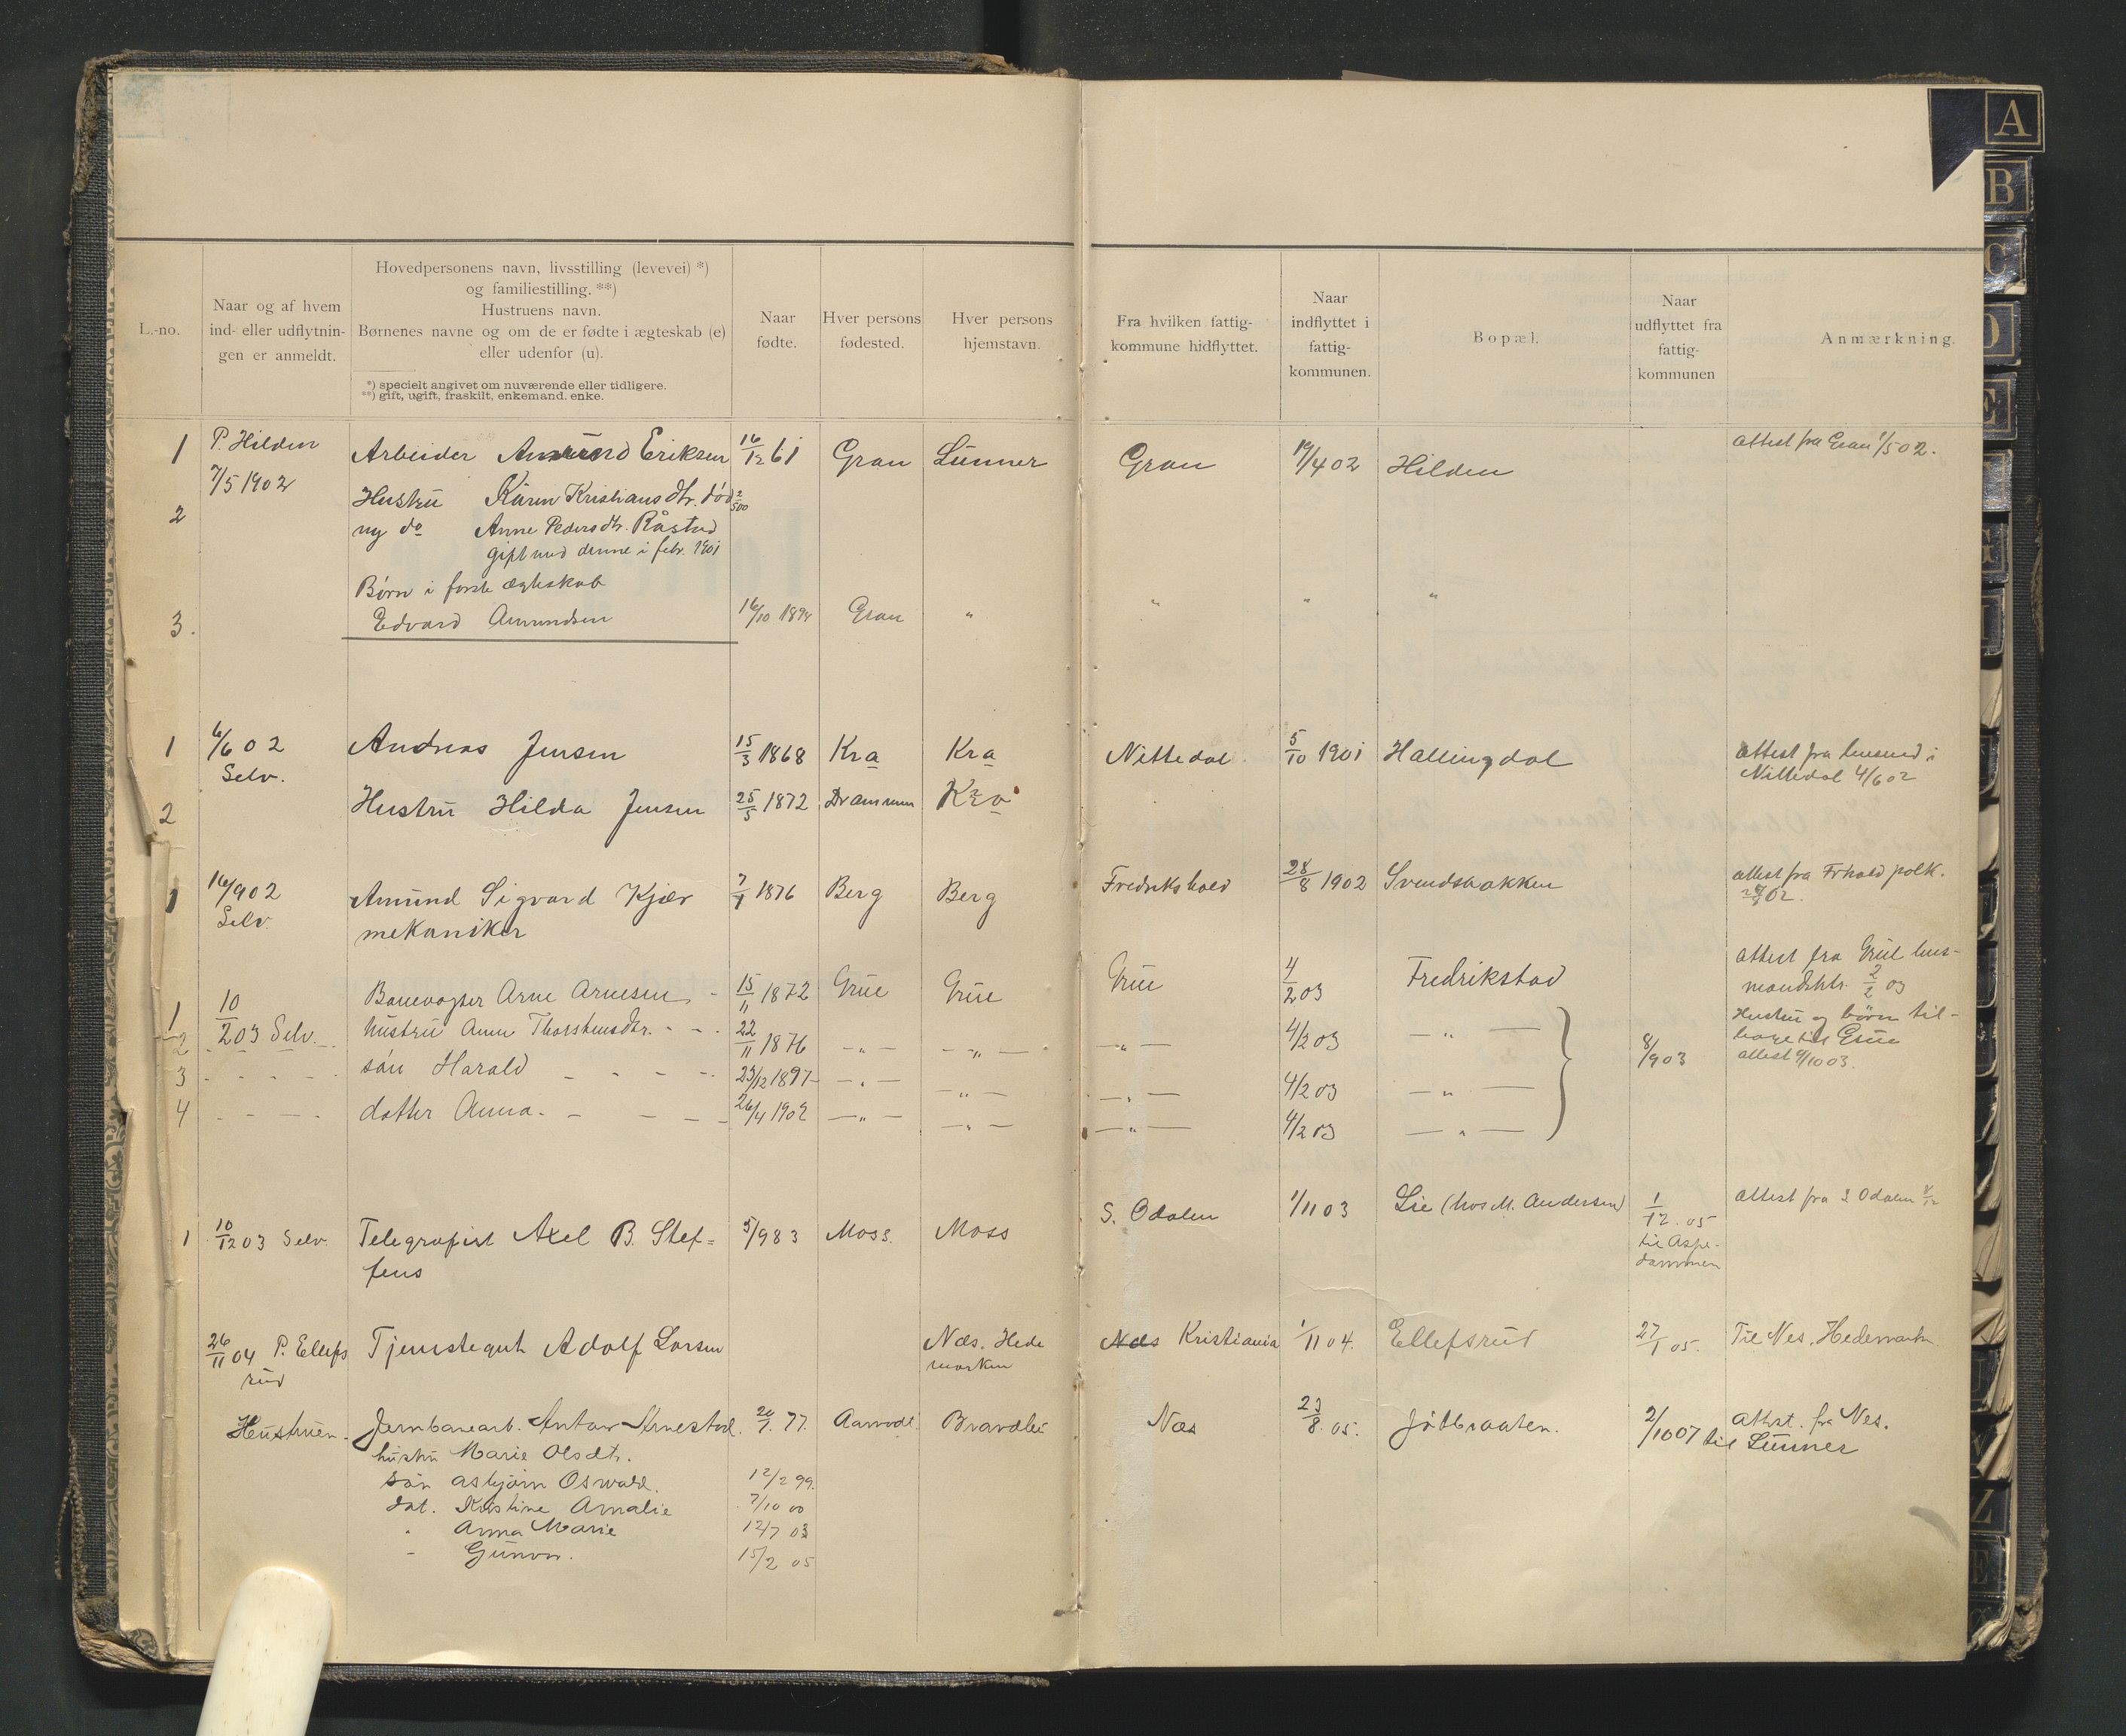 A
B
C
D
E
G
U
V
Z
L.-no.
Naar og af hvem
ind- eller udflytnin-
gen er anmeldt.
Hovedpersonens navn, livsstilling (levevei) *)
og familiestilling. **)
Hustruens navn.
Børnenes navne og om de er fødte i ægteskab (e)
eller udenfor (u).
*) specielt angivet om nuværende eller tidligere.
**) gift, ugift, fraskilt, enkemand. enke.
Naar
fødte.
Hver persons
fødested.
Hver persons
hjemstavn.
Fra hvilken fattig-
kommune hidflyttet.
Naar
indflyttet i
fattig-
kommunen.
Bopæl.
Naar
udflyttet fra
fattig-
kommunen
Anmærkning.
1 P. Hilden Arbeider Amund Eriksen 16/12 61 Gran Lunner Gran 19/4 02 Hilden attest fra Gran 1/5 02.
7/5 1902
2 Hustru Karen Kristiansdtr. død
ny do Anne Pedersdtr. Råstad
gift med denne i febr. 1901
Børn i første ægteskab
3. Edvard Amundsen 16/10 Gran " " " "
1 6/6 02 Andreas Jensen 15/3 1868 Kra Kra Nittedal 5/10 1901 Hallingdal attest fra lensmd i
Selv. Nittedal 4/6 02
2 Hustru Hilda Jensen 25/5 1872 Drammen Kra
1 16/9 02 Amund Sigvard Kjær 7/1 1876 Berg Berg Fredrikshald 28/8 1902 Svendsbakken attest fra Frhald polk.
Selv. mekaniker
1 10/2 03 Selv. Banevogter Arne Arnesen 15/11 1872 Grue Grue Grue 4/2 03 Fredrikstad attest fra Grue lens-
mandsktr. 2/2 03
2 hustru Anne Thorstensdtr. 22/11 1876 — " — — " — — " — 4/2 03 — " — 8/9 03 Hustru og børn til-
bage til Grue
attest 9/10 03.
3 søn Harald 23/12 1897 — " — — " — — " — 4/2 03 — " —
4 datter Anna 26/4 1902 — " — — " — — " — 4/2 03 — " —
1 10/12 03 Selv. Telegrafist Axel B. Stef= 5/9 83 Moss. Moss S. Odalen 1/11 03 Lie (hos M. Andersen) 1/12. 05 attest fra S Odalen
fens til Aspe-
dammen
26/11 04 P. Ellefs Tjenestegut Adolf Larsen Næs. Hede Næs Kristiania 1/11 04. Ellefsrud 27/1 05. Til Nes. Hedemarken
rud marken
Hustruen. Jernbanearb. Anton Arnestad. 20/7. 77. Brandbu Næs 23/8. 05. 2/10 07 til Lunner attest. fra Nes.
hustru Marie Olsdtr.
søn Asbjørn Oswald. 12/2 99.
dat. Kristine Amalie 7/10 00
" Anna Marie 12/7 03
- Gunvor. 15/2 05